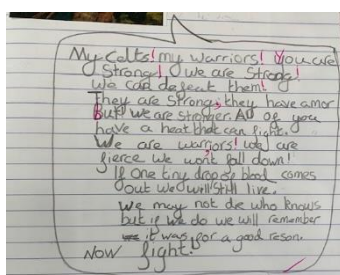 My Celts! my warriors! You are
Strong! we are Strong!
We can defeat them!
They are Strong, they have amor
But! we are stronger. All of you
have a heat that can fight.
We are warriors! we are
fierce we won't fall down!
If one tiny drop of blood comes
out we will still live.
We may not die who knows
but if we do we will remember
it was for a good reson.
NOW fight!